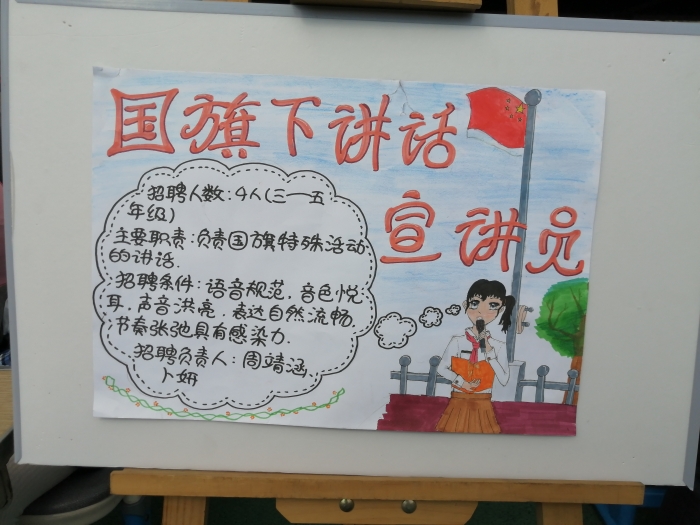 国旗下讲话
宣讲员
招聘人数:4人(三—五
年级)
主要职责:负责国旗特殊活动
的讲话.
招聘条件:语音规范,音色悦
耳,声音洪亮,表达自然流畅,
节奏张弛具有感染力.
招聘负责人:周靖涵,
卜妍